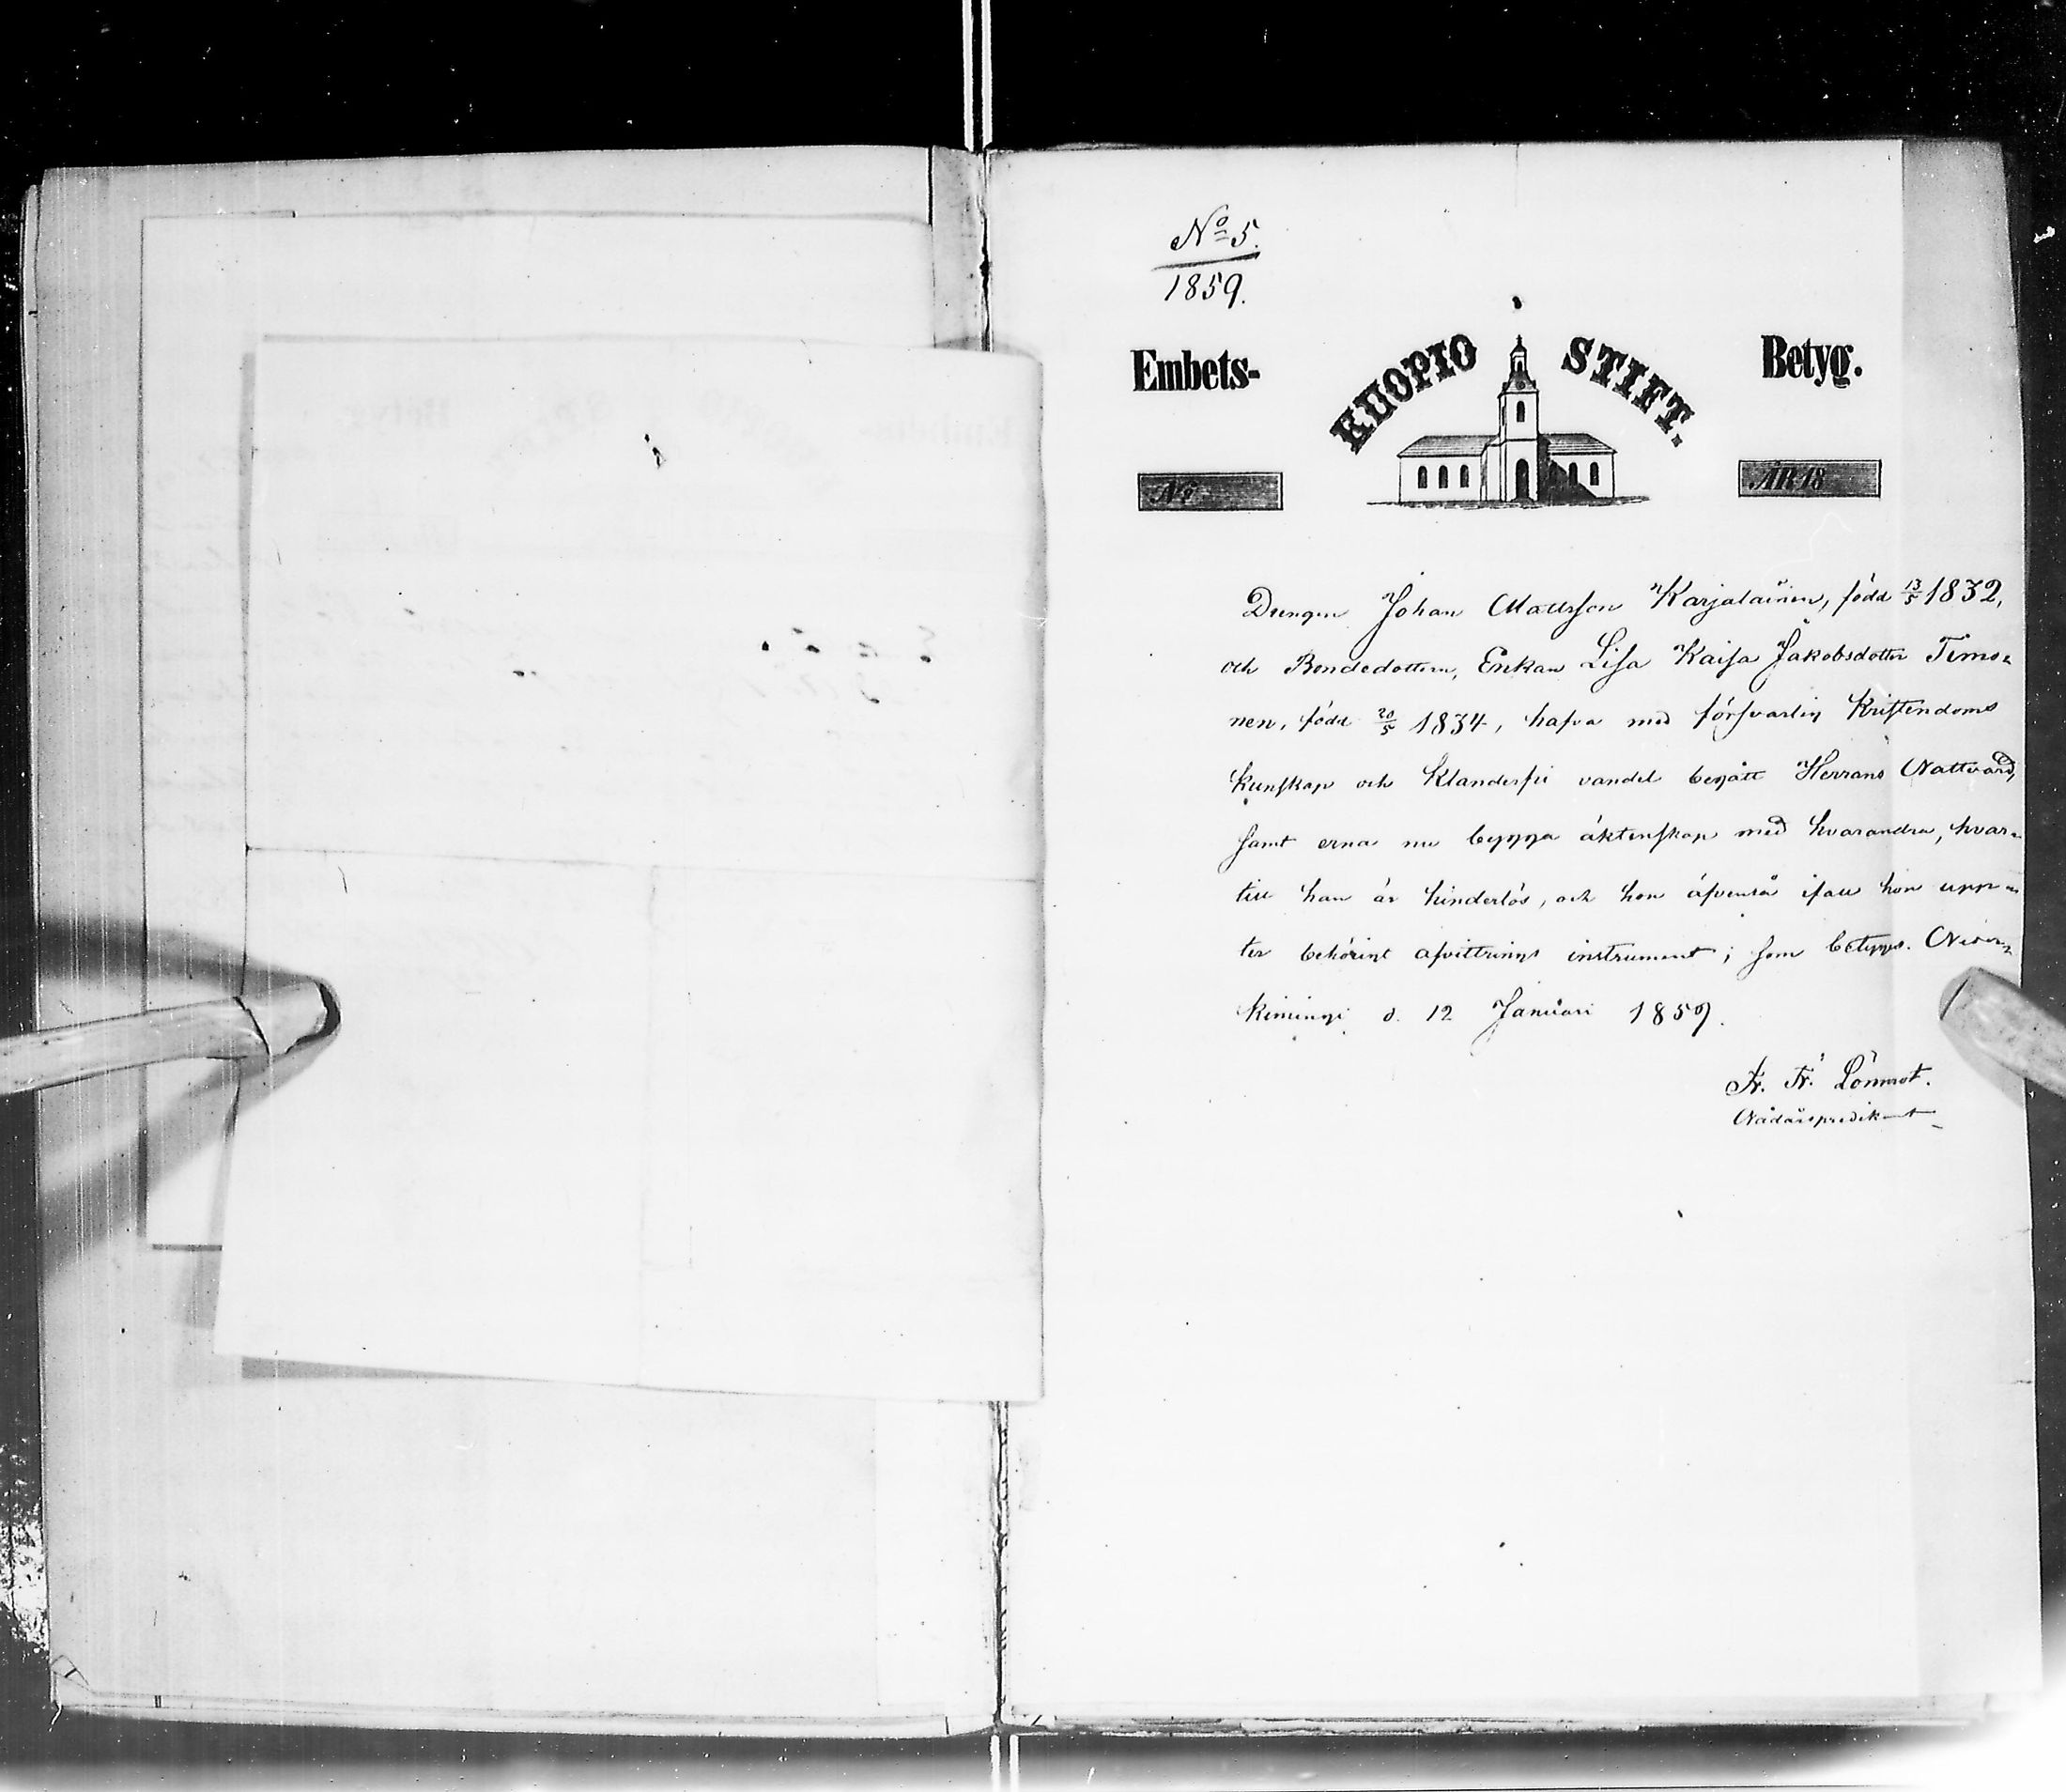 No 5.
1859.
Embets- KUOPIO STIFT. Betyg.
No ÅR 18
Drengen Johan Mattsson Karjalainen, född 13/5 1832,
och Bondedottern, Enkan Lisa Kaisa Jakobsdotter Timo-
nen, född 20/5 1834, hafva med försvarlig Kristendoms
kunskap och klanderfri vandel begått Herrans Nattvard,
samt ärna nu bygga äktenskap med hvarandra, hvar-
till han är hinderlös, och hon äfvenså ifall hon upp-
ter behörigt afvittrings instrument; som betygas.
kimingi d. 12 Januari 1859.
Fr. Fr. Lönnrot.
Nådårspredikant